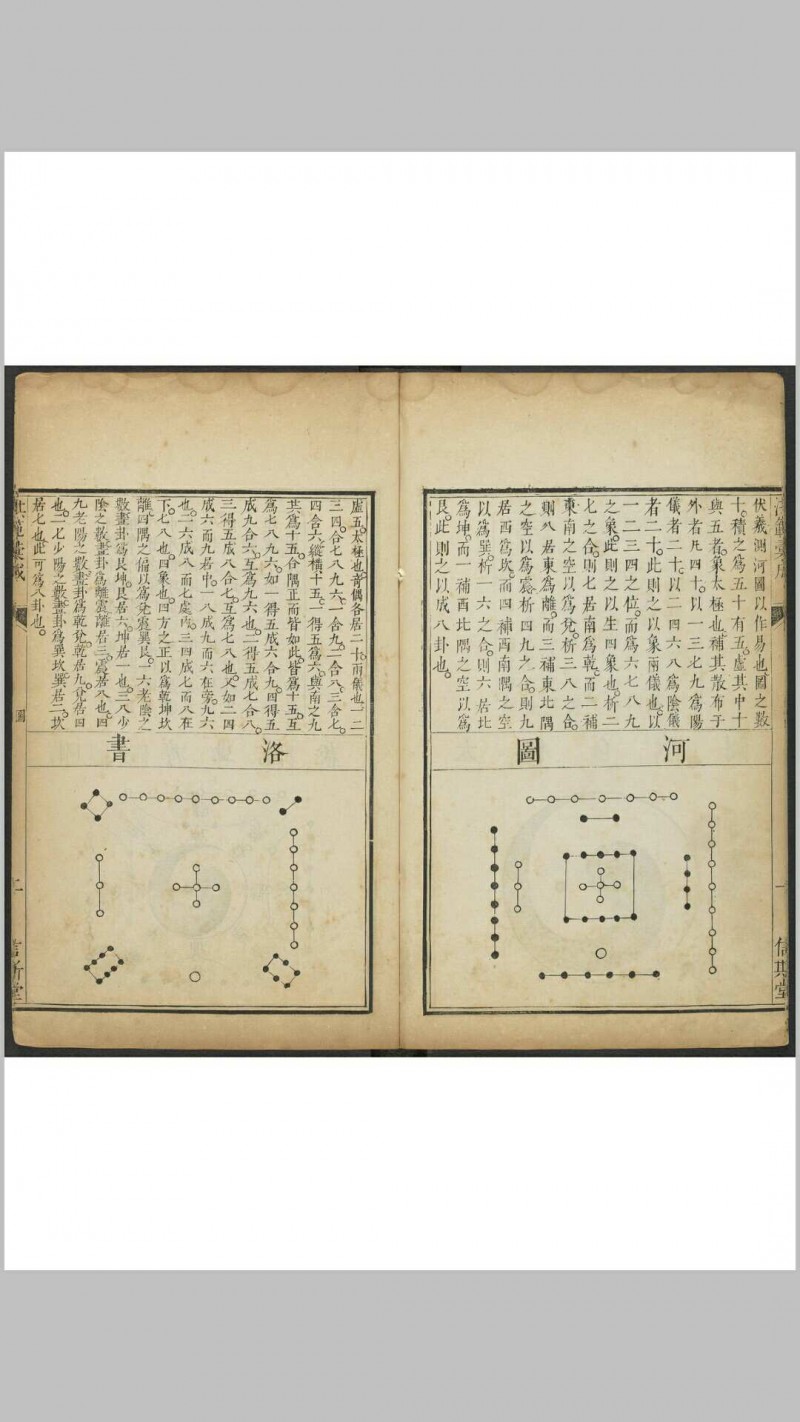 伏羲溯河圖以作易也圖之數
十積之爲五十有五虛其中十
與五者象太極也補其散布于
外者凡四十以一三七九爲陽
儀者二十以二四六八爲陰儀
者二十此則之以象兩儀也以
一二三四之位而爲六七八九
之象此則之以生四象也析二
七之合則七居南爲乾而二補
東南之空以爲兌析三八之合
則八居東爲離而三補東北隅
之空以爲震析四九之合則九
居酉爲坎而四補西南隅之空
以爲巽析一六之合則六居北
爲坤而一補酉北隅之空以爲
艮此則之以成八卦也
河圖
一
信斯堂
虛五太極也奇偶各居二十兩儀也一二
三四合七八九六一合九二合八三合七
四合六縱橫十五一得五爲六與南之九
共爲十五合隅正而皆如此皆爲十五互
爲七八九六如一得五成六合九四得五
成九合六互爲九六也二得五成七合八
三得五成八合七互爲七八也又如二四
成六而九若中一八成九而六在旁九六
也一六成八而七處內三四成七而八在
下七八也四象也四方之正以爲乾坤坎
離四隅之偏以爲兌震巽艮一六老陰之
數畫卦爲艮坤艮居六坤居一也三八少
陰之數畫卦爲離震離居三震居八也四
九老陽之數畫卦爲乾兌乾居九兌居四
也二七少陽之數畫卦爲巽坎巽居二坎
居七也此可爲八卦也
洛書
洪範彙成
圖
信斯堂